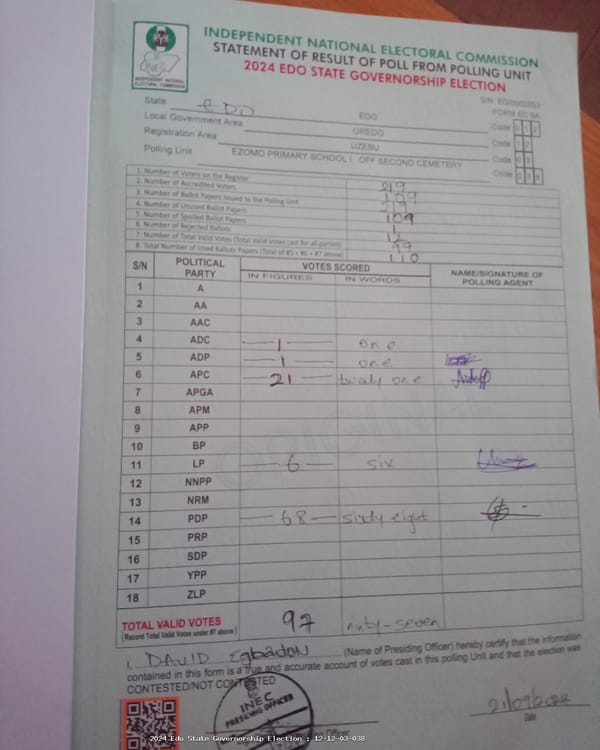 INDEPENDENT NATIONAL ELECTORAL COMMISSION
STATEMENT OF RESULT OF POLL FROM POLLING UNIT
2024 EDO STATE GOVERNORSHIP ELECTION
INDEPENDENT NATIONAL ELECTORAL COMMISSION
FORM EC 8A
State EDO EDO Code
Local Government Area OREDO Code
Registration Area UZEBU Code
Polling Unit EZOMO PRIMARY SCHOOL I, OFF SECOND CEMETERY Code
1. Number of Voters on the Register
2. Number of Accredited Voters
3. Number of Ballot Papers Issued to the Polling Unit
4. Number of Unused Ballot Papers 109
5. Number of Spoiled Ballot Papers
6. Number of Rejected Ballots
7. Number of Total Valid Votes (Total Valid Votes cast for all parties) 97
8. Total Number of Used Ballots Papers (Total of #5 + #6 + #7 above) 110
S/N POLITICAL PARTY VOTES SCORED NAME/SIGNATURE OF POLLING AGENT
IN FIGURES IN WORDS
1 A
2 AA
3 AAC
4 ADC 1 one
5 ADP 1 one
6 APC 21 twenty one
7 APGA
8 APM
9 APP
10 BP
11 LP 6 six
12 NNPP
13 NRM
14 PDP 68 sixty eight
15 PRP
16 SDP
17 YPP
18 ZLP
TOTAL VALID VOTES 97 ninty-seven
(Record Total Valid Votes under #7 above)
I, DAVID Egbadon (Name of Presiding Officer) hereby certify that the information
contained in this form is a true and accurate account of votes cast in this polling Unit and that the election was
CONTESTED/NOT CONTESTED
INEC
PRESIDING OFFICER
21/09/2024
Date
2024 Edo State Governorship Election : 12-12-03-038